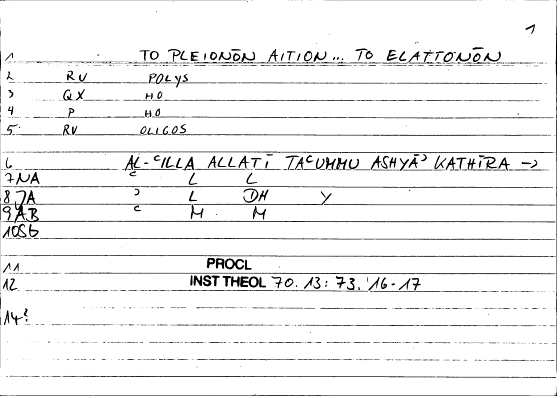 1
1 TO PLEIONŌN AITION... TO ELATTONŌN
2 RU POLYS
3 QX HO
4 P HO
5 RU OLIGOS
6 AL-ᶜILLA ALLATĪ TAᶜUMMU ASHYĀʾ KATHĪRA →
7 NA ᶜ L L
8 JA ʾ L DH Y
9 AB ᶜ M M
10 SB
11 PROCL
12 INST THEOL 70. 13: 73. 16-17
14?